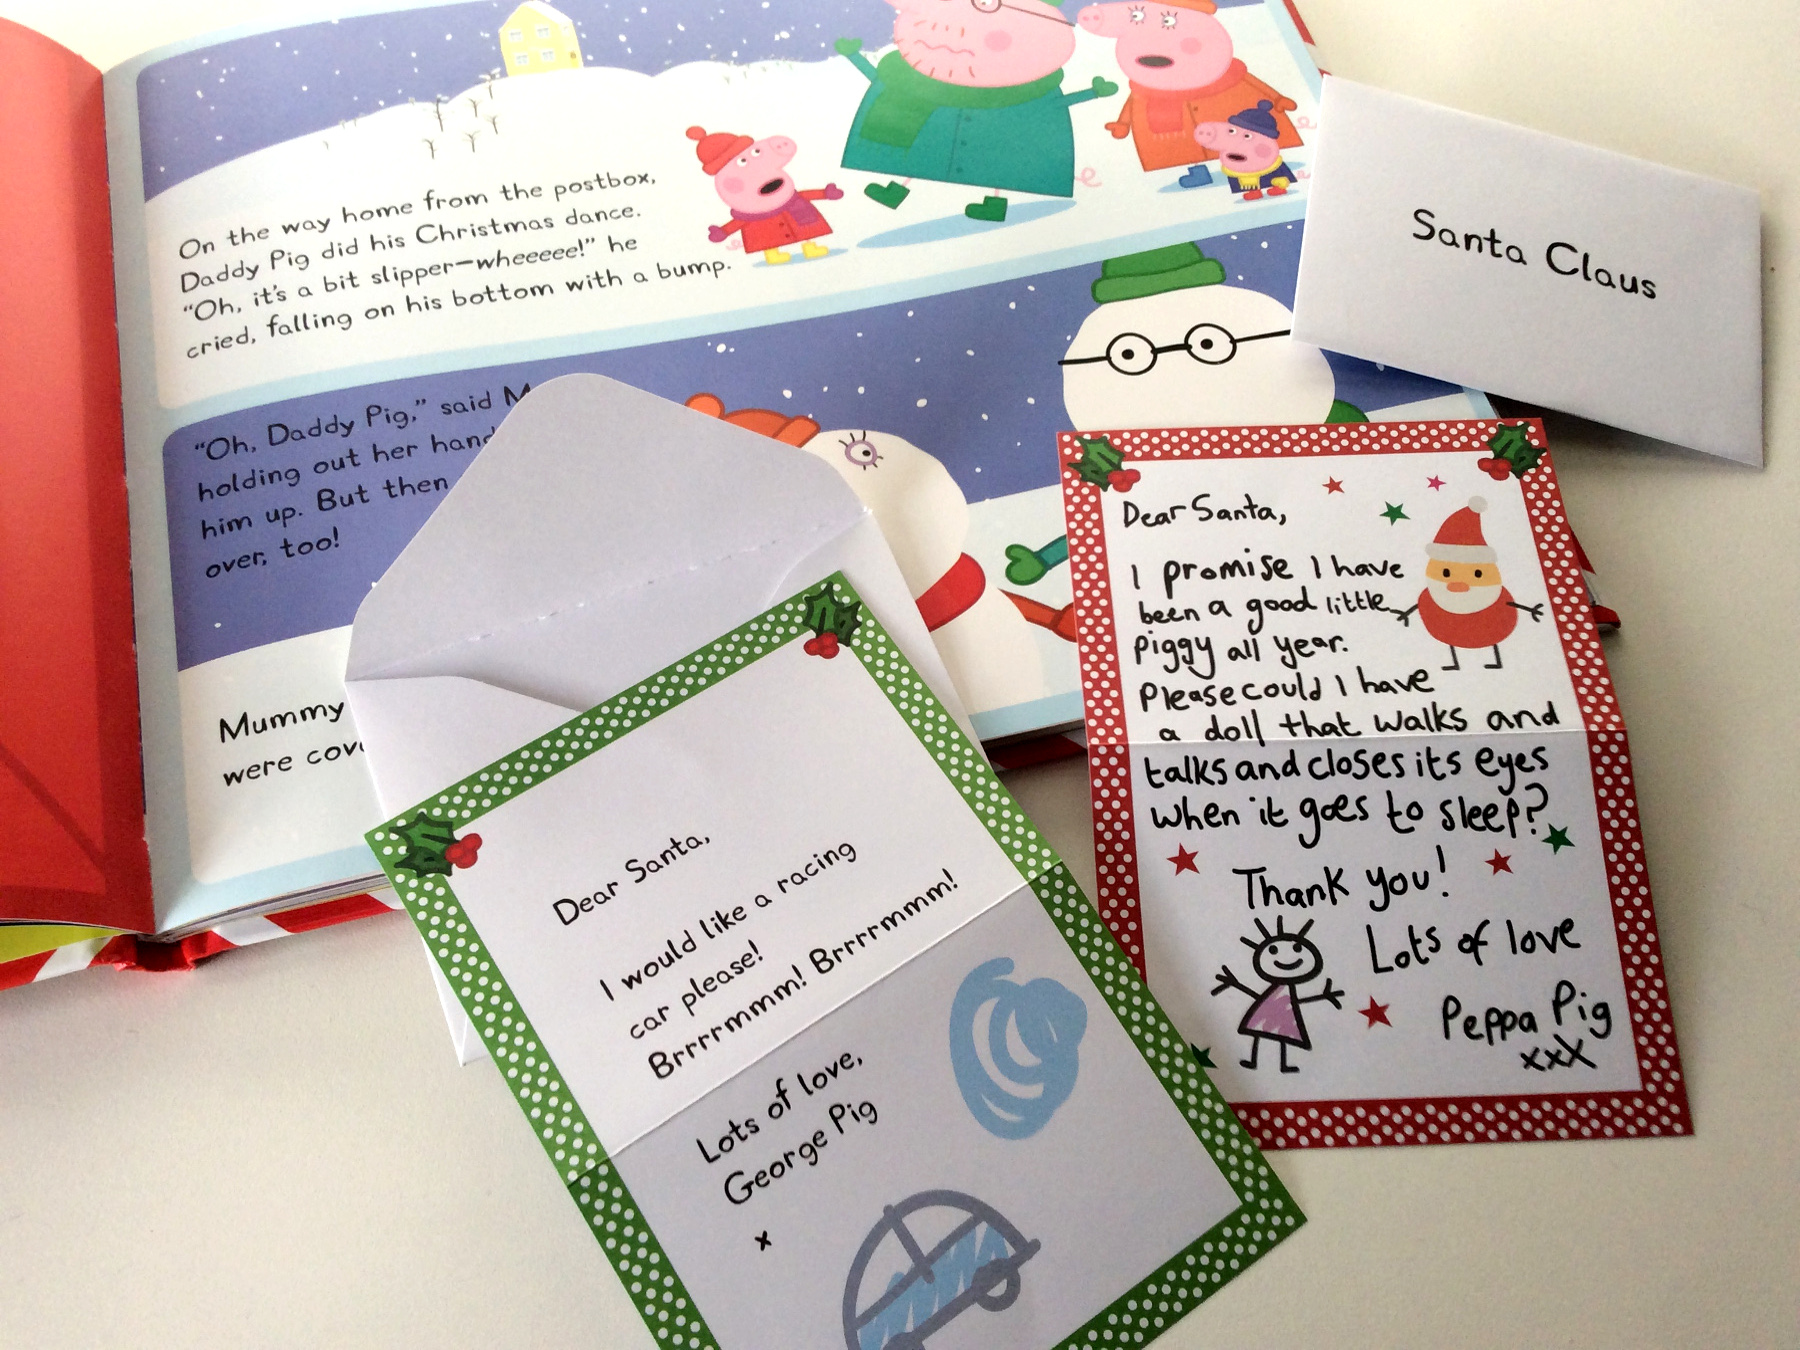 On the way home from the postbox,
Daddy Pig did his Christmas dance.
“Oh, it's a bit slipper–wheeeee!” he
cried, falling on his bottom with a bump.
“Oh, Daddy Pig,” said
holding out her hand
him up. But then
over, too!
Mummy
were
Santa Claus
Dear Santa,
I would like a racing
car please!
Brrrrmmm! Brrrrmmm!
Lots of love,
George Pig
x
Dear Santa,
I promise I have
been a good little
piggy all year.
Please could I have
a doll that walks and
talks and closes its eyes
when it goes to sleep?
Thank you!
Lots of love
Peppa Pig
xxx